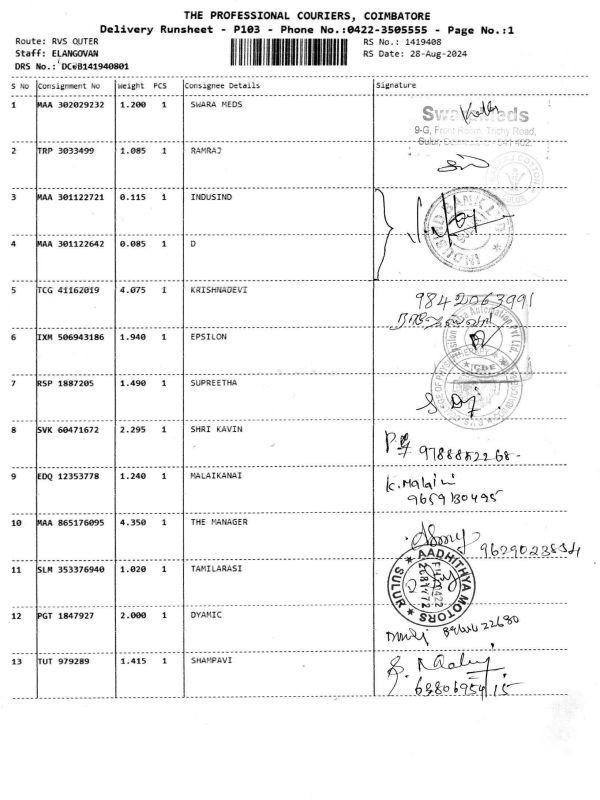 THE PROFESSIONAL COURIERS, COIMBATORE
Delivery Runsheet - P103 - Phone No.:0422-3505555 - Page No.:1
Route: RVS OUTER RS No.: 1419408
Staff: ELANGOVAN RS Date: 28-Aug-2024
DRS No.:
S No Consignment No Weight PCS Consignee Details Signature
1 MAA 302029232 1.200 1 SWARA MEDS
9-G, Front Room, Trichy Road,
2 TRP 3033499 1.085 1 RAMRAJ
3 MAA 301122721 0.115 1 INDUSIND
4 MAA 301122642 0.085 1 D
5 TCG 41162019 4.075 1 KRISHNADEVI 9842063991
6 IXM 506943186 1.940 1 EPSILON
7 RSP 1887205 1.490 1 SUPREETHA
8 SVK 60471672 2.295 1 SHRI KAVIN
9 EDQ 12353778 1.240 1 MALAIKANAI K. Malaini
9659130495
10 MAA 865176095 4.350 1 THE MANAGER
11 SLM 353376940 1.020 1 TAMILARASI AADHITHYA MOTORS SULUR
12 PGT 1847927 2.000 1 DYAMIC
13 TUT 979289 1.415 1 SHAMPAVI